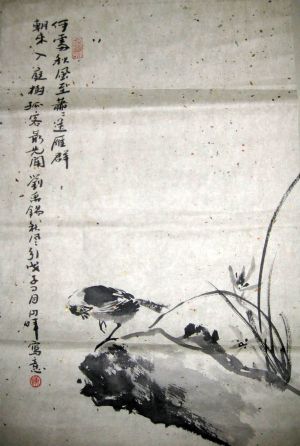 何處秋風至蕭々送雁群
朝來入庭樹孤客最先聞 劉禹錫秋風引戊子 月 寫意